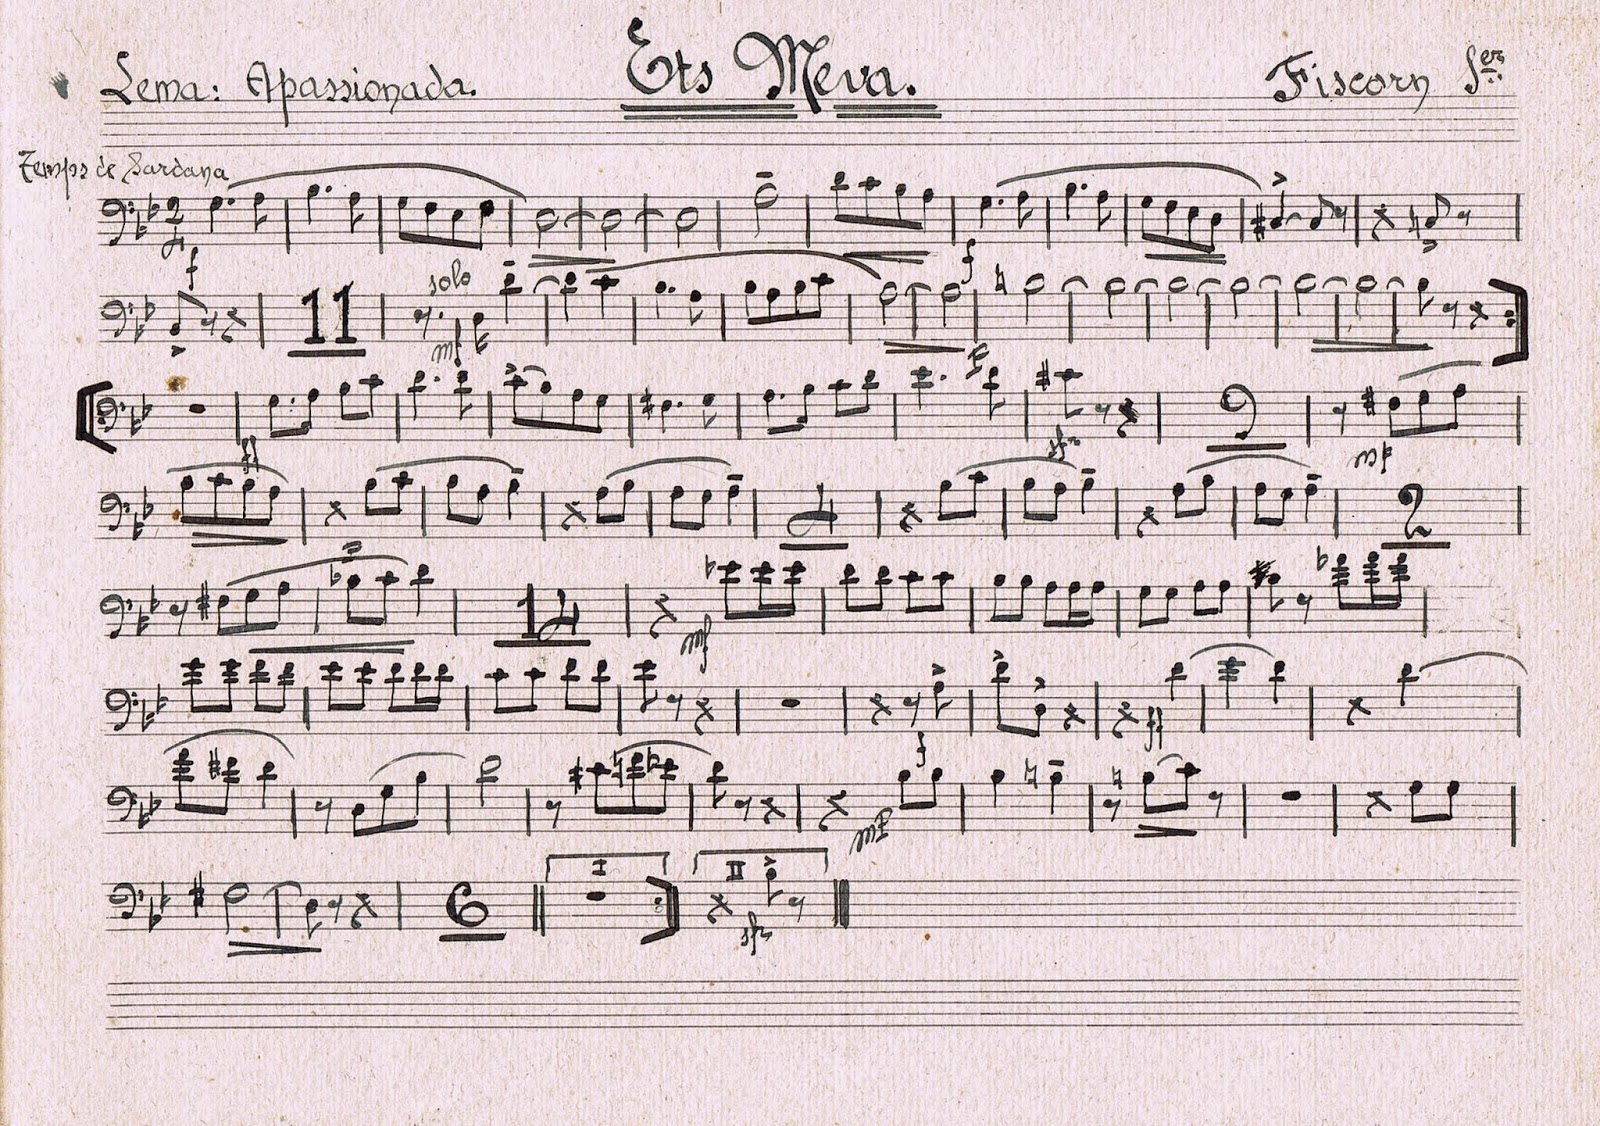 Lema: Apassionada. Ets Meva. Fiscorn 1er
Temps de Sardana
2
4
f
f
11
solo
mf
p
ff
sfz
9
mf
4
2
14
mf
f
ff
mf
6
I
II
sfz